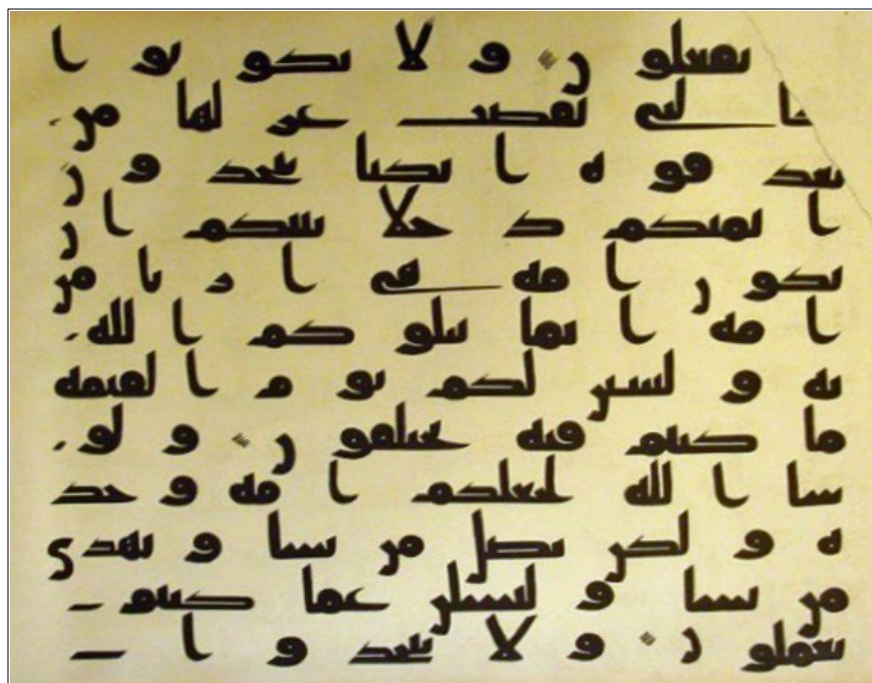 تفعلون ولا تكونوا
كالتي نقضت غزلها من
بعد قوة انكثا تتخذون
ايمنكم دخلا بينكم ان
تكون امة هي اربى من
امة انما يبلوكم الله
به وليبينن لكم يوم القيمة
ما كنتم فيه تختلفون ولو
شا الله لجعلكم امة وحد
ة ولكن يضل من يشا ويهدي
من يشا ولتسلن عما كنتم
تعملون ولا تتخذوا